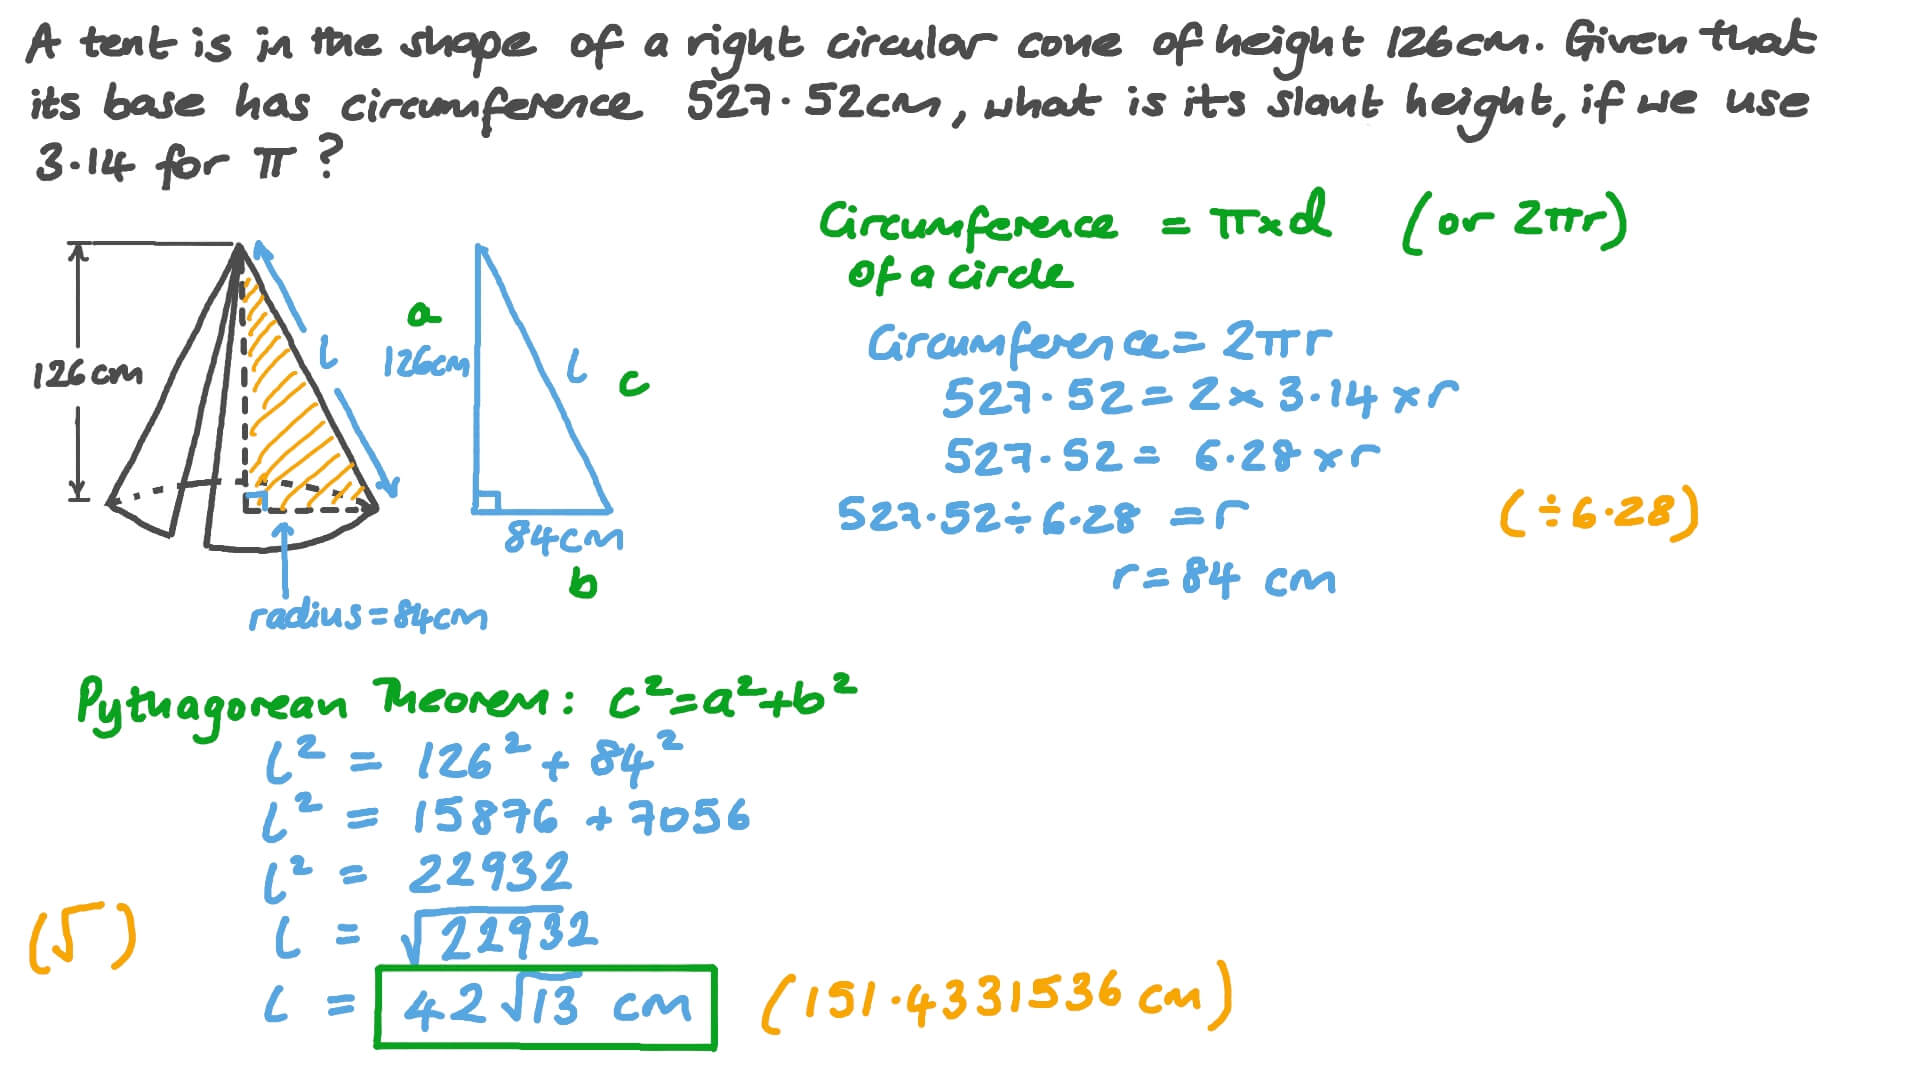 A tent is in the shape of a right circular cone of height 126cm. Given that
its base has circumference 527.52cm, what is its slant height, if we use
3.14 for π?
Circumference = π×d (or 2πr)
of a circle
126cm
l
a
126cm
l
c
84cm
b
radius=84cm
Circumference = 2πr
527.52 = 2 × 3.14 × r
527.52 = 6.28 × r
527.52÷6.28 = r (÷6.28)
r = 84 cm
Pythagorean Theorem: c²=a²+b²
l² = 126² + 84²
l² = 15876 + 7056
l² = 22932
(√) l = √22932
l = 42√13 cm (151.4331536 cm)